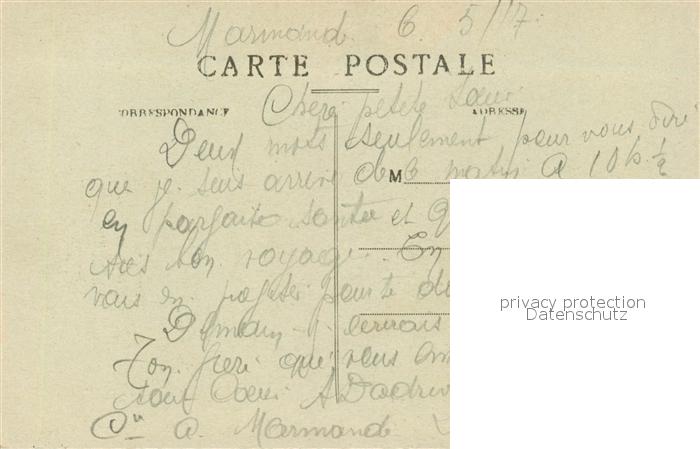 Marmande. 6. 5/17.
CARTE POSTALE
CORRESPONDANCE
ADRESSE
Chere petite Soeur
Deux mots seulement pour vous dire
que je suis arrivé de matin a 10 h ½
M
en parfaite santée et
tres bon voyage. En
vais en profiter pour te
Demain j ecrirais
Ton frere qui vous
tout Coeur
a Marmande
privacy protection
Datenschutz